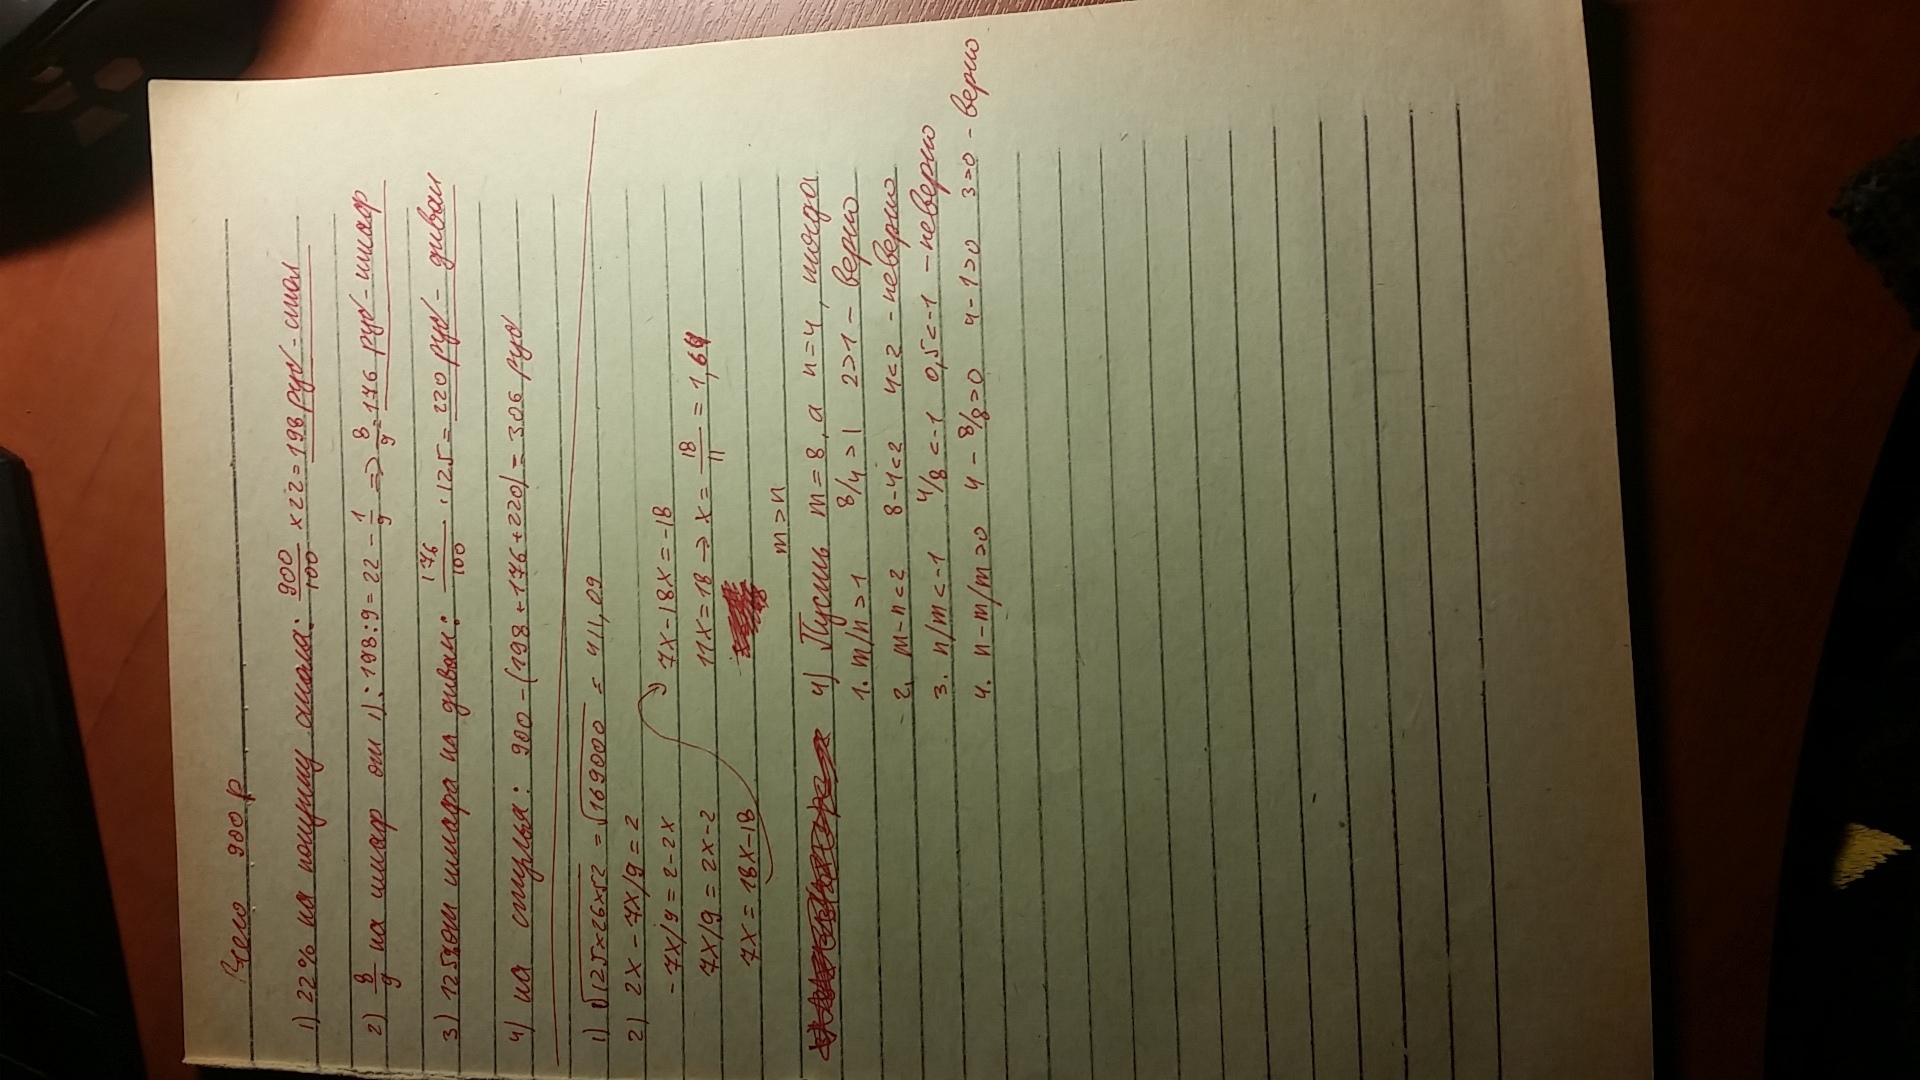 Всего 900 р
1) 22% на покупку стола: 900/100 x 22 = 198 руб - стол
2) 8/9 на шкаф от 1): 198:9 = 22 - 1/9 => 8/9 = 176 руб - шкаф
3) 125% от шкафа на диван: 176/100 · 125 = 220 руб - диван
4) на стулья: 900 - (198 + 176 + 220) = 306 руб
1) √125x26x52 = √169000 = 411,09
2) 2x - 7x/9 = 2
- 7x/9 = 2 - 2x
7x/9 = 2x - 2
7x = 18x - 18
7x - 18x = -18
11x = 18 -> x = 18/11 = 1,64
m > n
4) Пусть m = 8, а n = 4, тогда
1. m/n > 1 8/4 > 1 2 > 1 - верно
2. m - n < 2 8-4<2 4<2 - неверно
3. n/m < -1 4/8 < -1 0,5 < -1 - неверно
4. n - m/m > 0 4 - 8/8 > 0 4 - 1 > 0 3 > 0 - верно